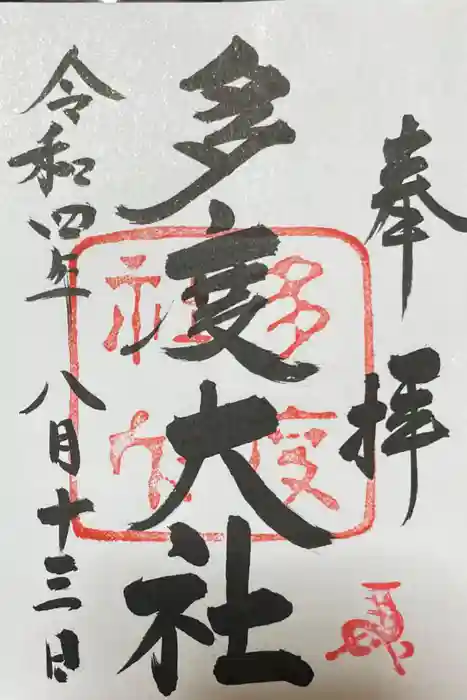 奉拝
多度大社
令和四年八月十三日
多度